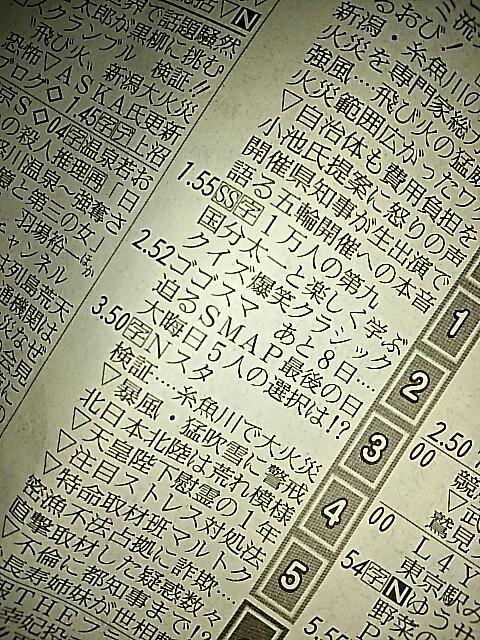 新潟・糸魚川の
火災を専門家総力
強風…飛び火の猛
火災範囲広がったワ
▽自治体も費用負担を
小池氏提案に怒りの声
開催県知事が生出演で
語る五輪開催への本音
1.55SS字1万人の第九
国分太一と楽しく学ぶ
クイズ爆笑クラシック
2.52ゴゴスマ あと8日…
迫るSMAP最後の日
大晦日5人の選択は!?
3.50字Nスタ
検証…糸魚川で大火災
▽暴風・猛吹雪に警戒
北日本北陸は荒れ模様
▽天皇陛下慰霊の1年
▽注目ストレス対処法
▽特命取材班マルトク
密漁不法占拠に詐欺…
直撃取材した疑惑数々
▽不倫に都知事まで!?
長寿姉妹が世相
太郎が黒柳に挑む
スクランブル 検証!!
"飛び火" 新潟大火災
恐怖▽ASKA氏更新
ブログ◇1.45字デ上沼
京S◇04字温泉若お
の殺人推理園「日
川温泉〜強奪さ
憶と第三の女」ほか
羽場裕一
チャンネル
1
2
3
4
5
2.50
00
00
L4Y
東京駅
54字Nゆう
野菜
5.5
鷲見